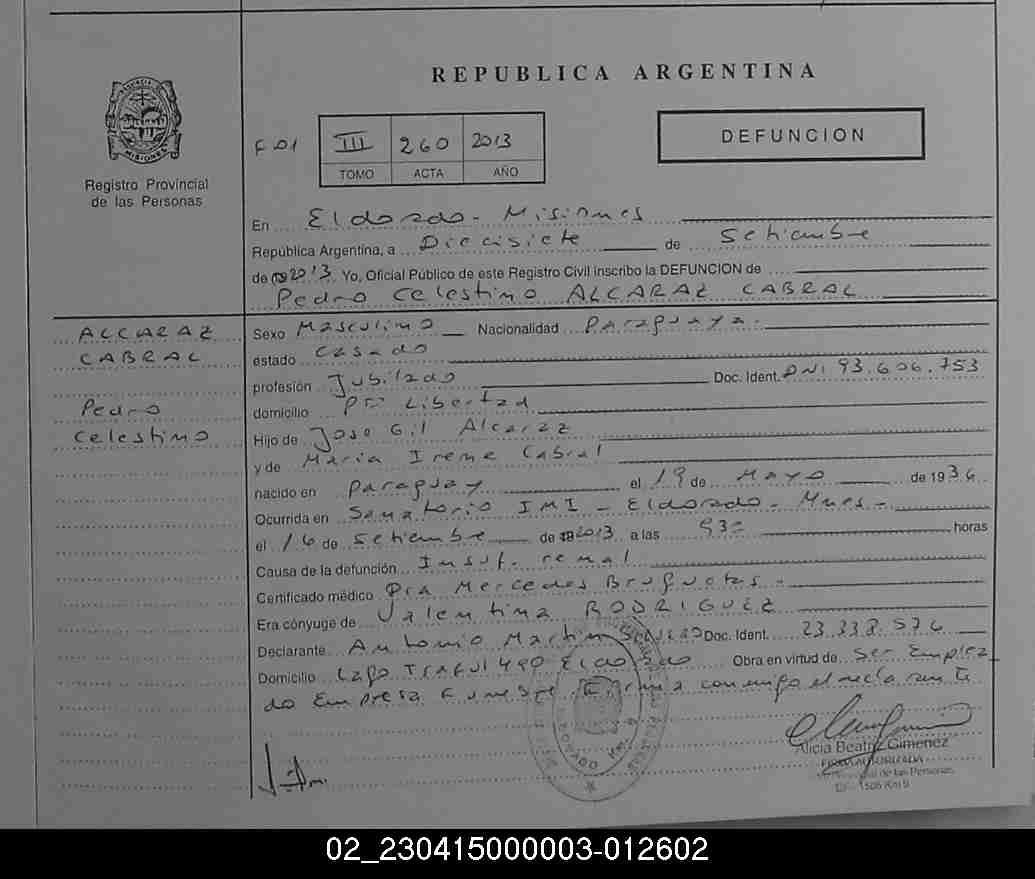 REPUBLICA ARGENTINA
PROVINCIA DE
MISIONES
Registro Provincial
de las Personas
F 01
III 260 2013
TOMO ACTA AÑO
DEFUNCION
En Eldorado - Misiones
República Argentina, a Diecisiete de Setiembre
de 2013 Yo, Oficial Público de este Registro Civil inscribo la DEFUNCION de
Pedro Celestino ALCARAZ CABRAL
ALCARAZ
CABRAL
Pedro
Celestino
Sexo Masculino Nacionalidad Paraguaya.
estado Casado
profesión Jubilado Doc. Ident. DNI 93.606.753
domicilio Pto Libertad
Hijo de Jose Gil Alcaraz
y de Maria Irene Cabral
nacido en Paraguay el 19 de Mayo de 1936
Ocurrida en Sanatorio IMI - Eldorado - Mnes -
el 16 de Setiembre de 2013 a las 930 horas
Causa de la defunción Insuf. renal
Certificado médico Dra Mercedes Bruquetas -
Era cónyuge de Valentina RODRIGUEZ
Declarante Antonio Martin Doc. Ident. 23.338.576
Domicilio Lago 490 Eldorado Obra en virtud de Ser Emplea
do Empresa Funebre conmigo el declarante
Alicia Beatriz Gimenez
FIRMA AUTORIZADA
de las Personas
02_230415000003-012602